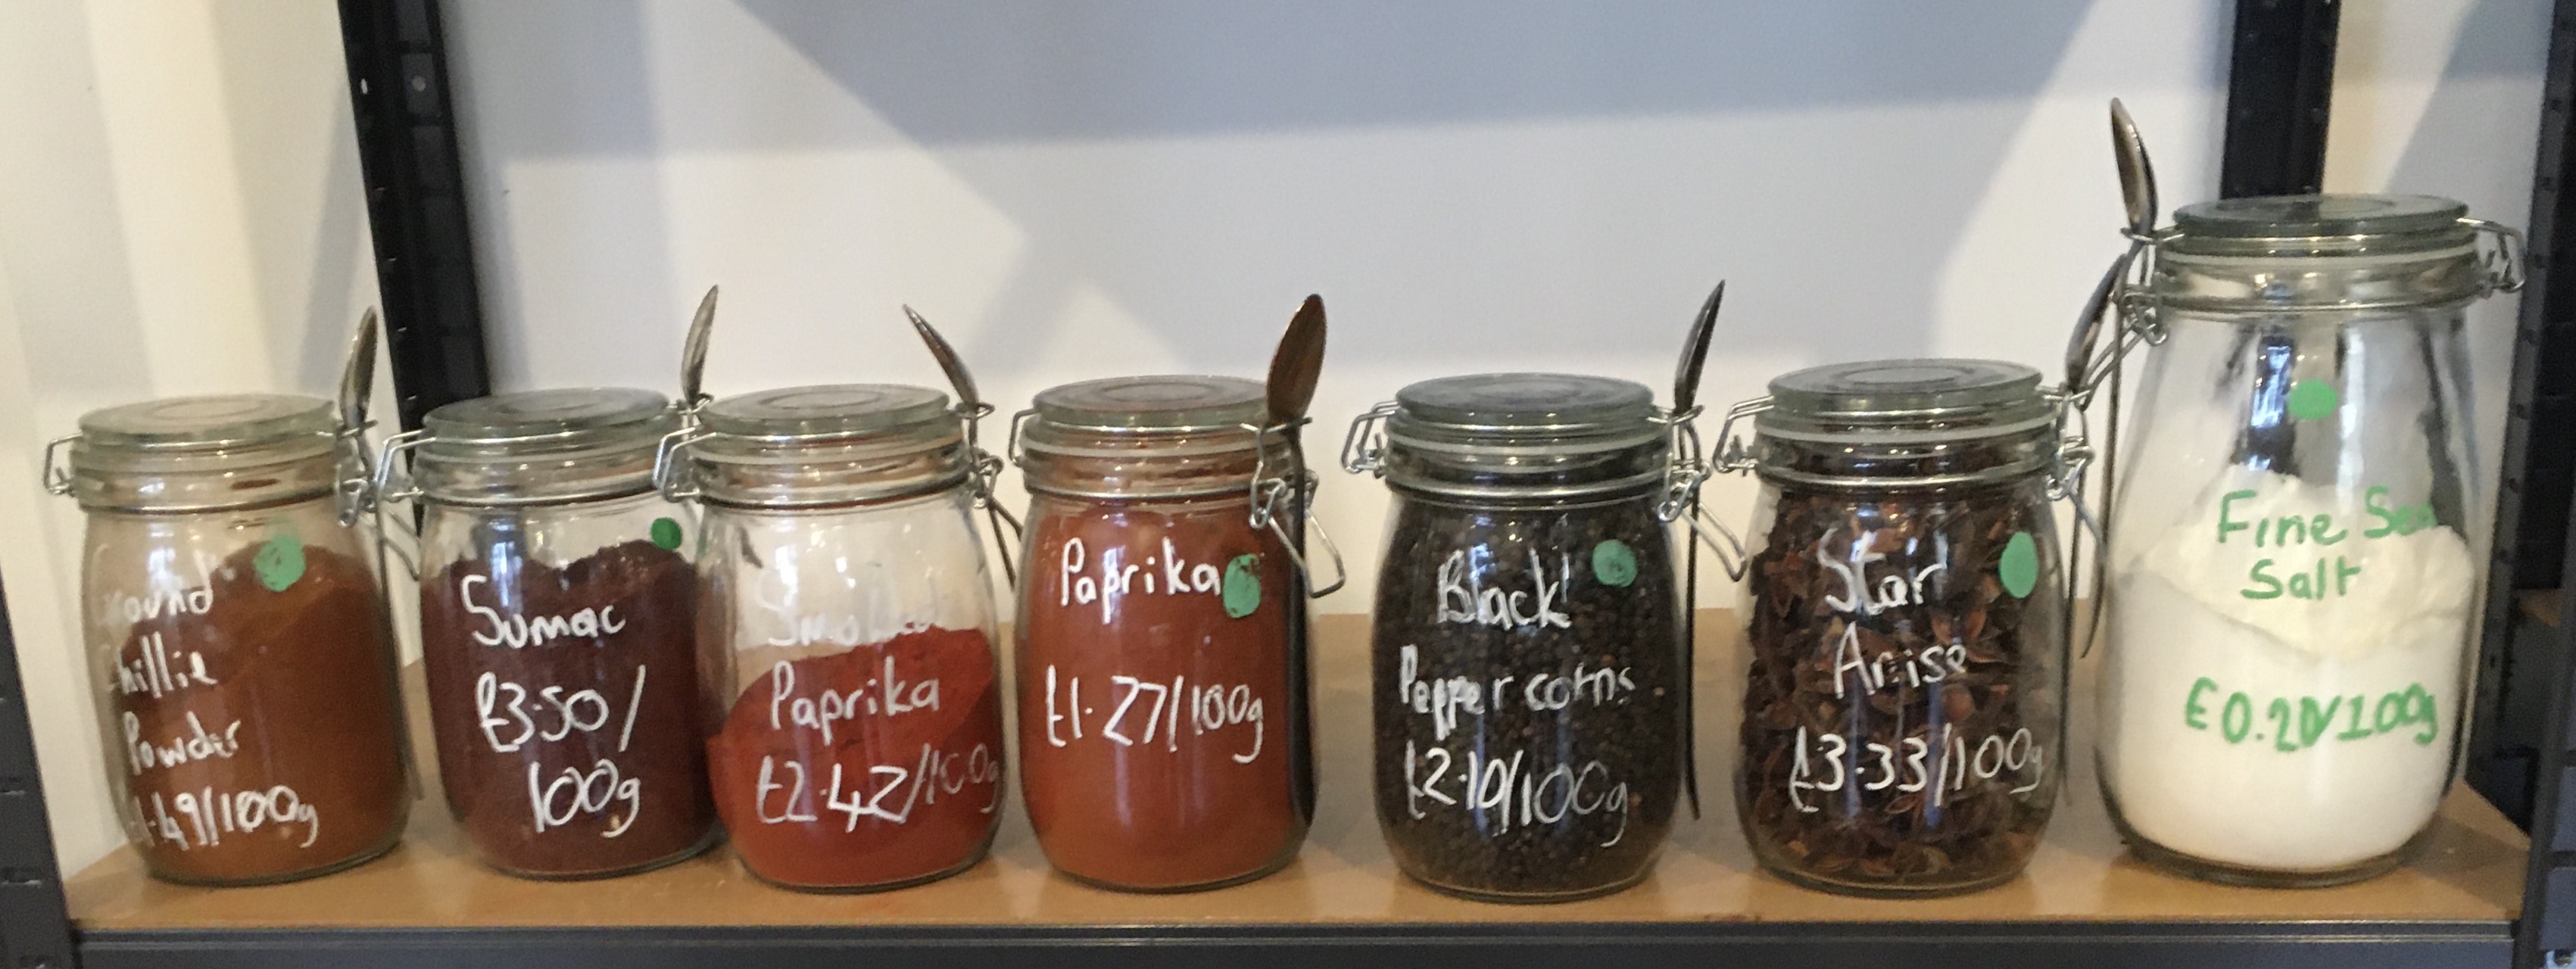 ound
hillie
Powder
1.49/100g
Sumac
£3.50/
100g
Smoked
Paprika
£2.42/100g
Paprika
£1.27/100g
Black
Pepper corns
£2.10/100g
Star
Anise
£3.33/100g
Fine Sea
Salt
£0.20/100g